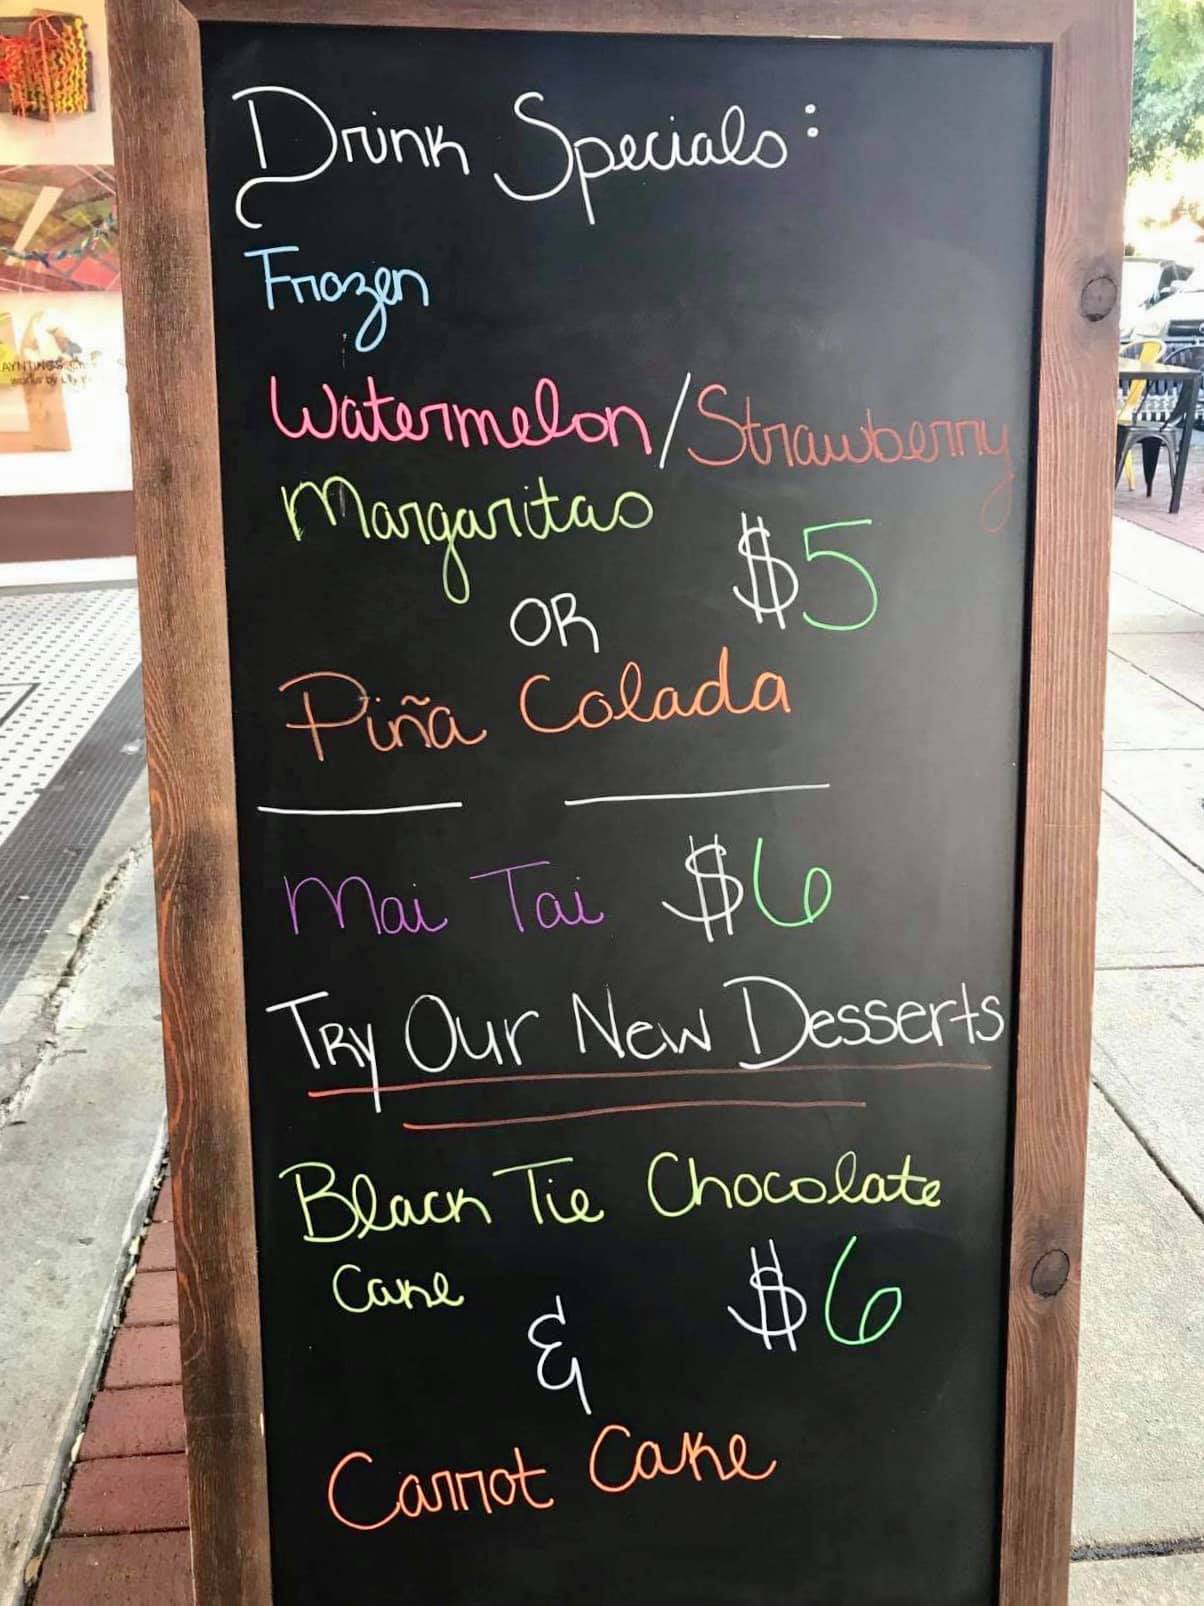 Drink Specials:
Frozen
Watermelon/Strawberry
Margaritas
$5
OR
Piña Colada
Mai Tai $6
Try Our New Desserts
Black Tie Chocolate
Cake
$6
&
Carrot Cake